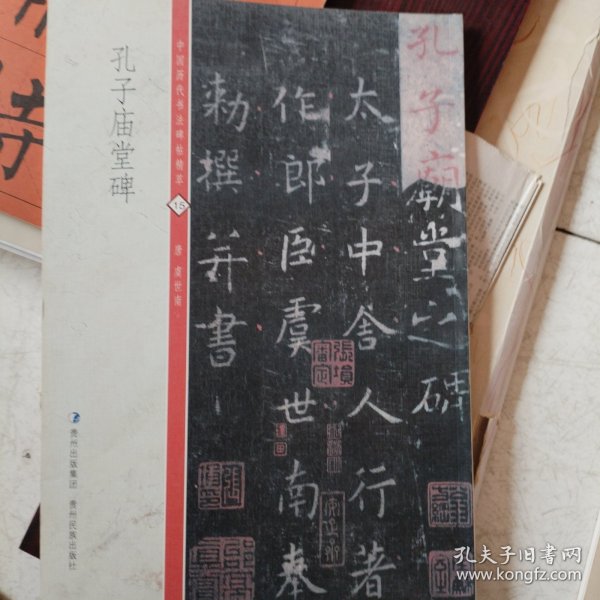 孔子庙堂碑
中国历代书法碑帖精萃
15
唐 虞世南
贵州出版集团 贵州民族出版社
孔子廟堂之碑
太子中舍人行著
作郎臣虞世南奉
勅撰并書
張塤
審定
孔夫子旧书网
www.kongfz.com